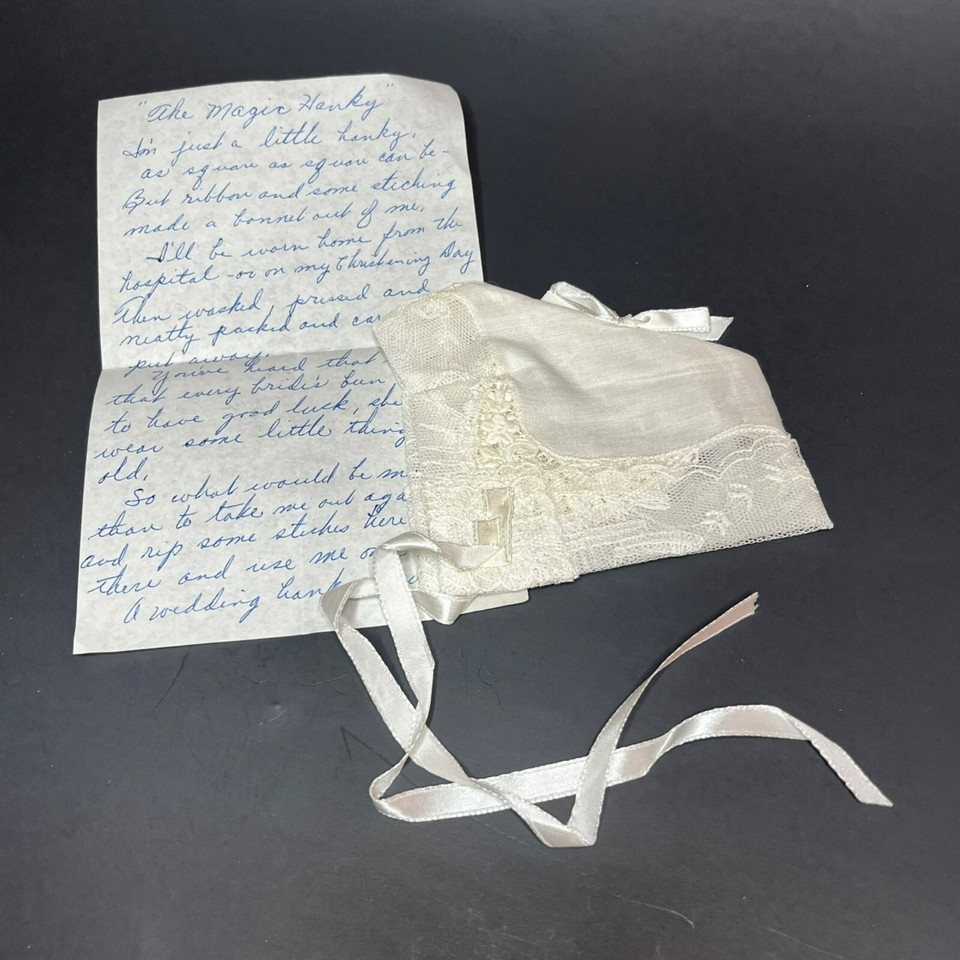 "The Magic Hanky"
I'm just a little hanky,
as square as square can be-
But ribbon and some stiching
made a bonnet out of me.
I'll be worn home from the
hospital -or on my Christening Day
Then washed, pressed and
neatly packed and car
put away.
You've heard that
that every bride's bun
to have good luck, she
wear some little thing
old,
So what would be m
than to take me out aga
and rip some stiches here
there and use me on
A wedding hank